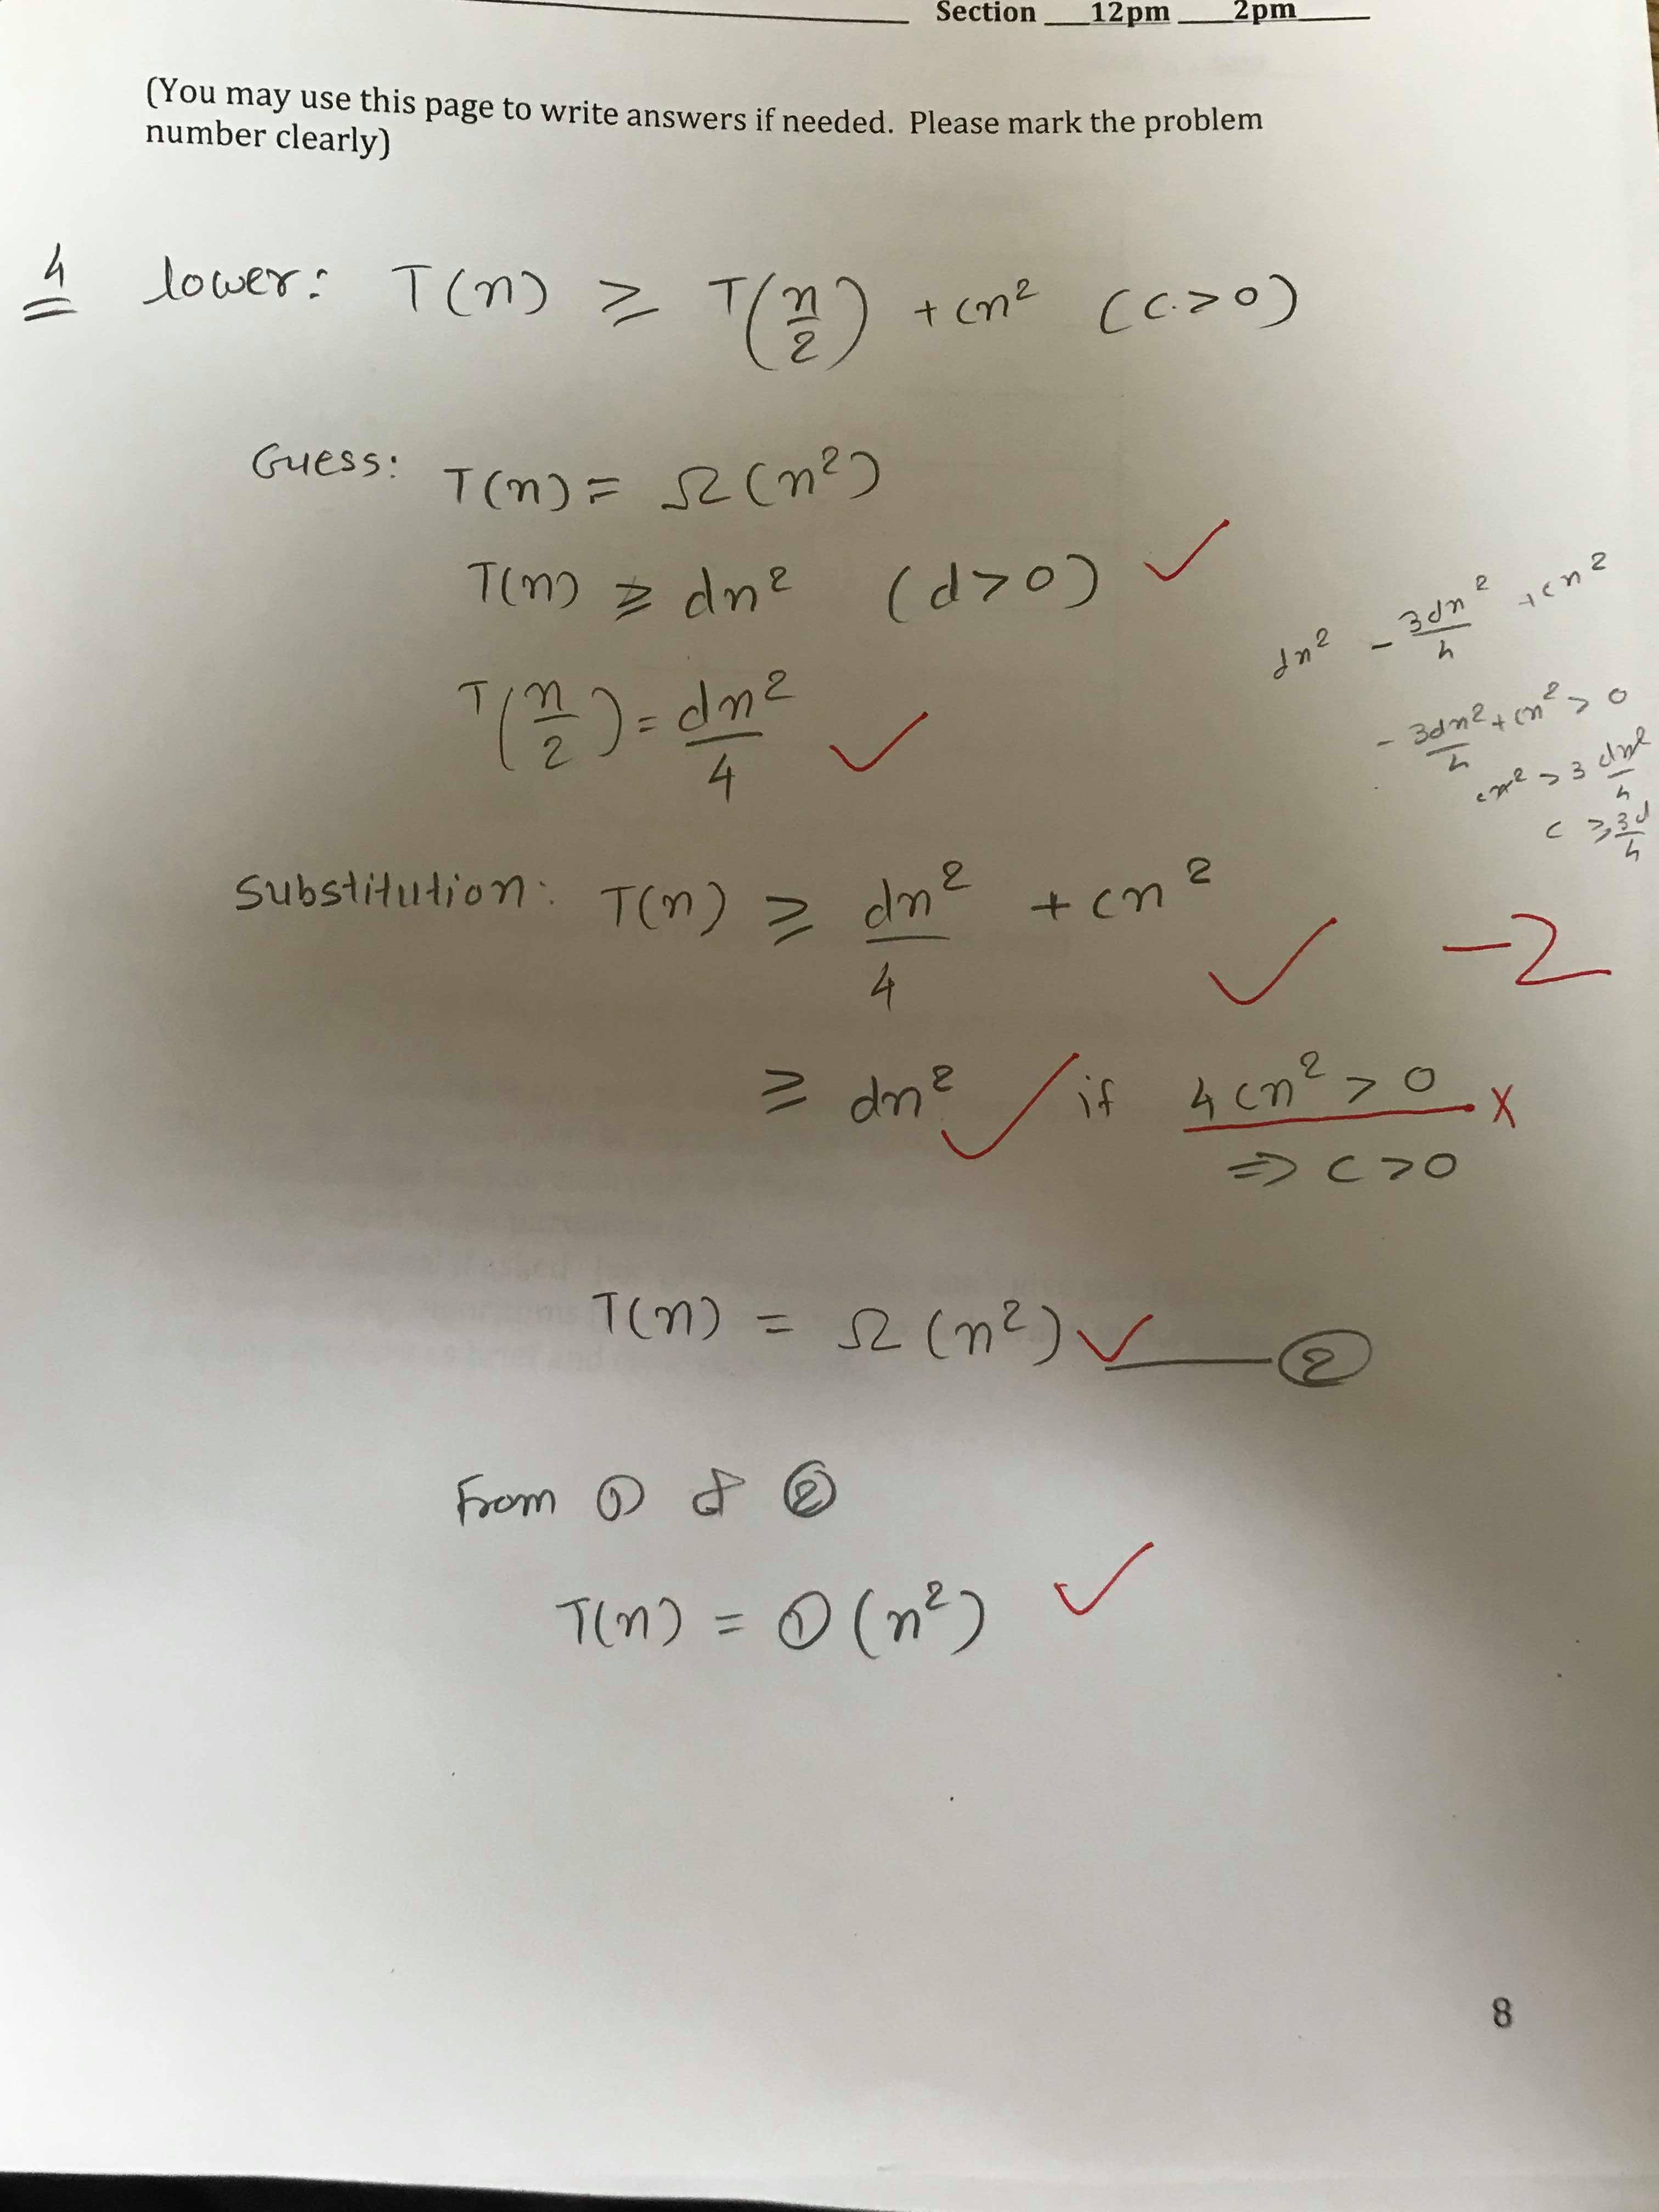 Section ___12pm ___2pm___
(You may use this page to write answers if needed. Please mark the problem
number clearly)
4 lower: T(n) ≥ T(n/2) + cn² (c>0)
Guess: T(n) = Ω(n²)
T(n) ≥ dn² (d>0) ✓
T(n/2) = dn²/4 ✓
dn² - 3dn²/4 + cn²
- 3dn²/4 + cn² > 0
cn² > 3dn²/4
c ≥ 3d/4
Substitution: T(n) ≥ dn²/4 + cn² ✓ -2
≥ dn² ✓ if 4cn² > 0 x
⇒ c>0
T(n) = Ω(n²) ✓ ②
From ① & ②
T(n) = Θ(n²) ✓
8